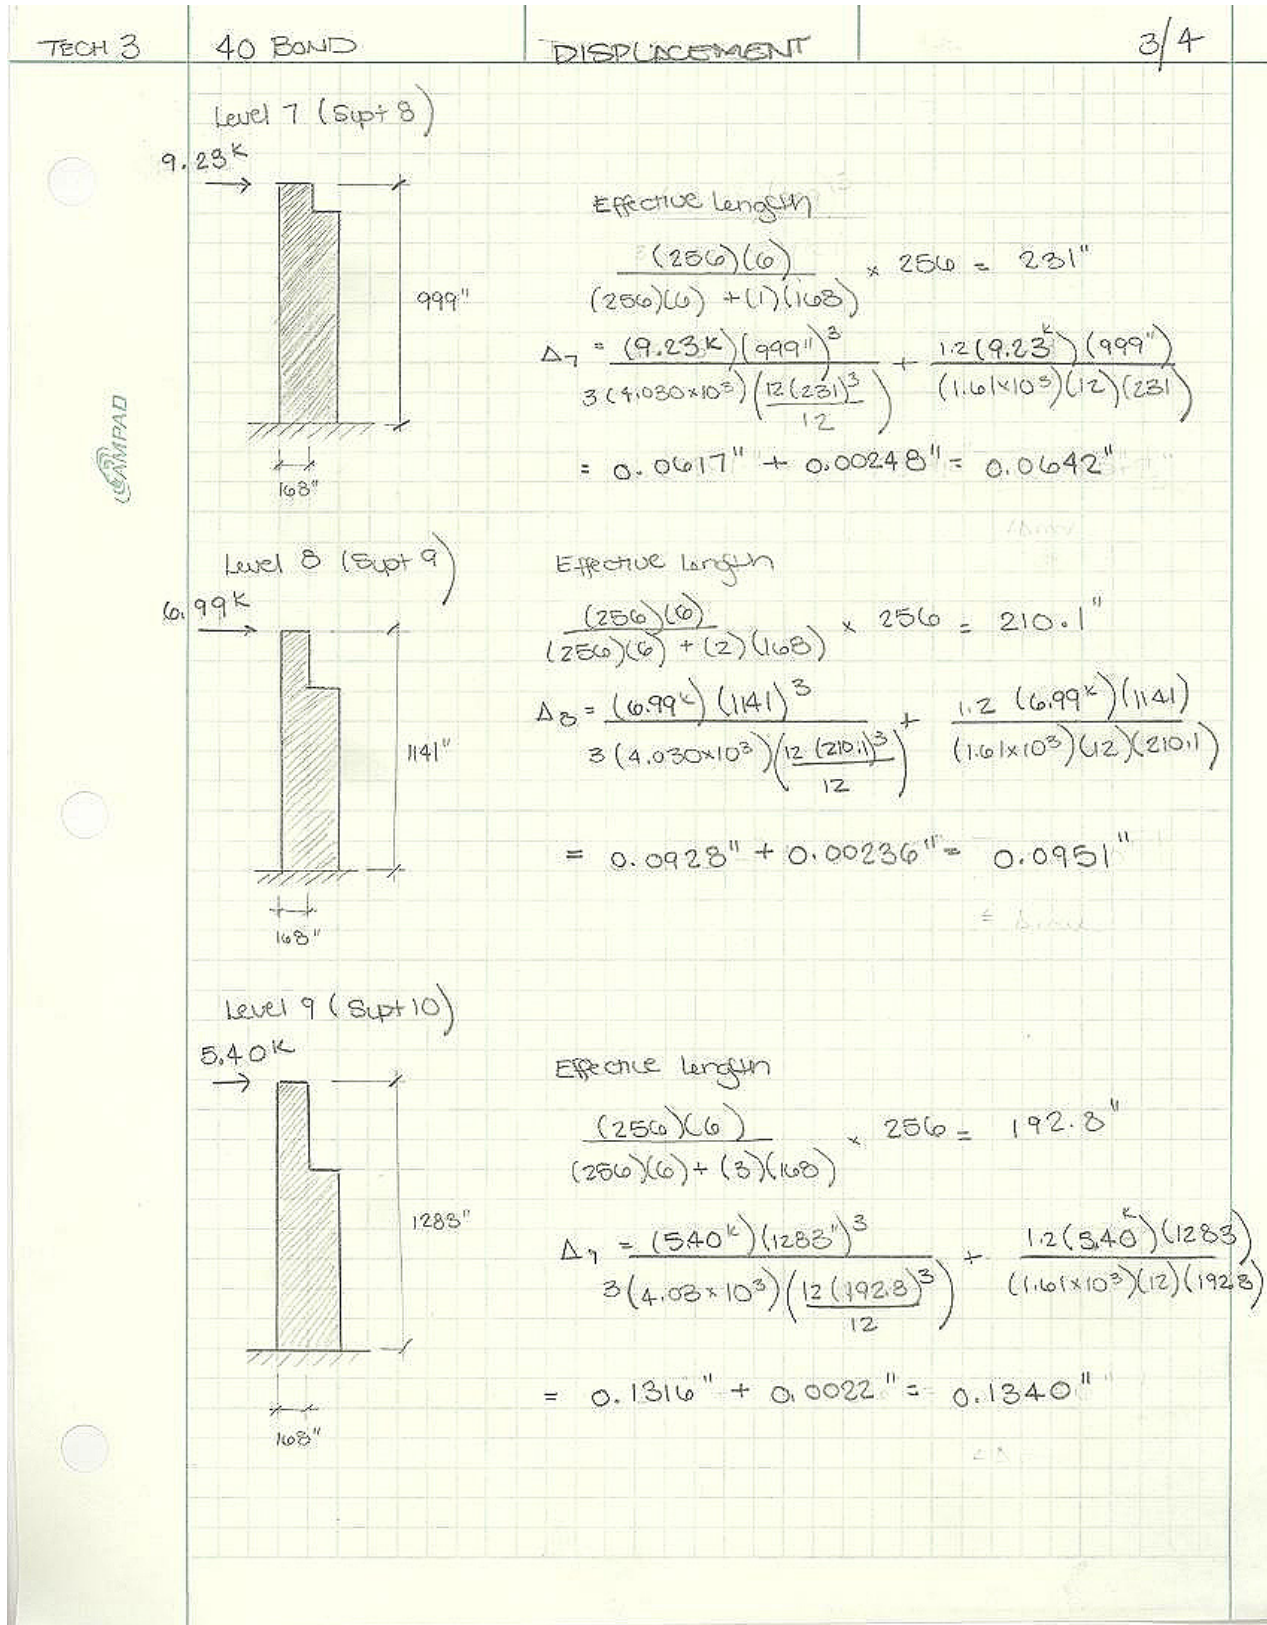 TECH 3 40 BOND DISPLACEMENT 3/4
Level 7 (Supt 8)
9.23K
999"
168"
Effective length
(256)(6) / (256)(6) + (1)(168) × 256 = 231"
Δ7 = (9.23K)(999")³ / 3(4.030×10³)(12(231)³/12) + 1.2(9.23K)(999") / (1.61×10³)(12)(231)
= 0.0617" + 0.00248" = 0.0642"
AMPAD
Level 8 (Supt 9)
6.99K
1141"
168"
Effective length
(256)(6) / (256)(6) + (2)(168) × 256 = 210.1"
Δ8 = (6.99K)(1141)³ / 3(4.030×10³)(12(210.1)³/12) + 1.2(6.99K)(1141) / (1.61×10³)(12)(210.1)
= 0.0928" + 0.00236" = 0.0951"
Level 9 (Supt 10)
5.40K
1283"
168"
Effective length
(256)(6) / (256)(6) + (3)(168) × 256 = 192.8"
Δ9 = (5.40K)(1283")³ / 3(4.03×10³)(12(192.8)³/12) + 1.2(5.40K)(1283) / (1.61×10³)(12)(192.8)
= 0.1316" + 0.0022" = 0.1340"